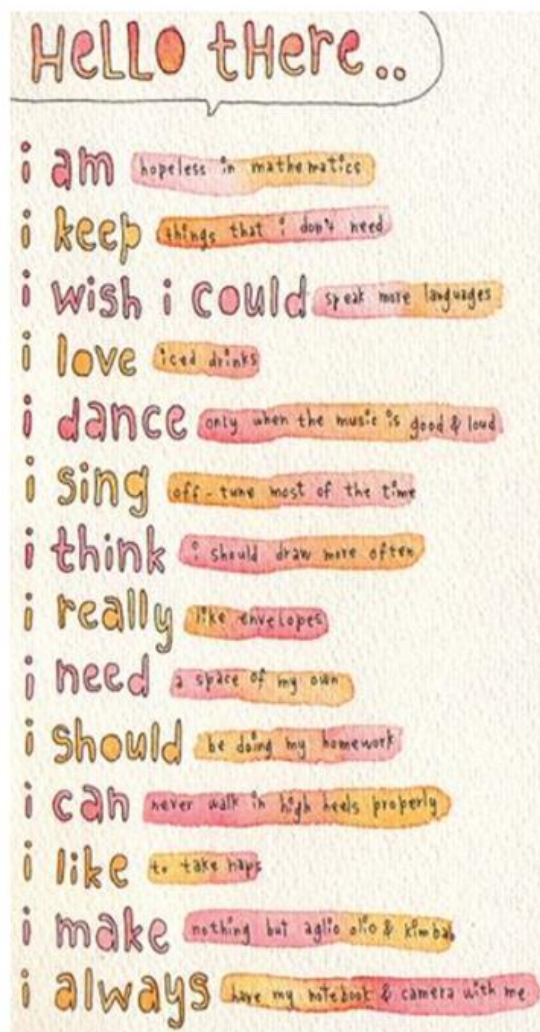 HeLLO tHere..
i am hopeless in mathematics
i keep things that i don't need
i wish i could speak more languages
i love iced drinks
i dance only when the music is good & loud
i sing off-tune most of the time
i think i should draw more often
i really like envelopes
i need a space of my own
i should be doing my homework
i can never walk in high heels properly
i like to take naps
i make nothing but aglio olio & kimbab
i always have my notebook & camera with me